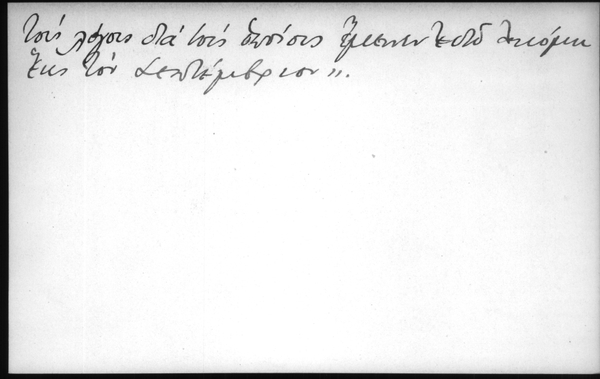 τούς λόγους διά τούς ὁποίους ἔμεινεν ἐδῶ ἀκόμη
ἕως τόν Σεπτέμβριον".